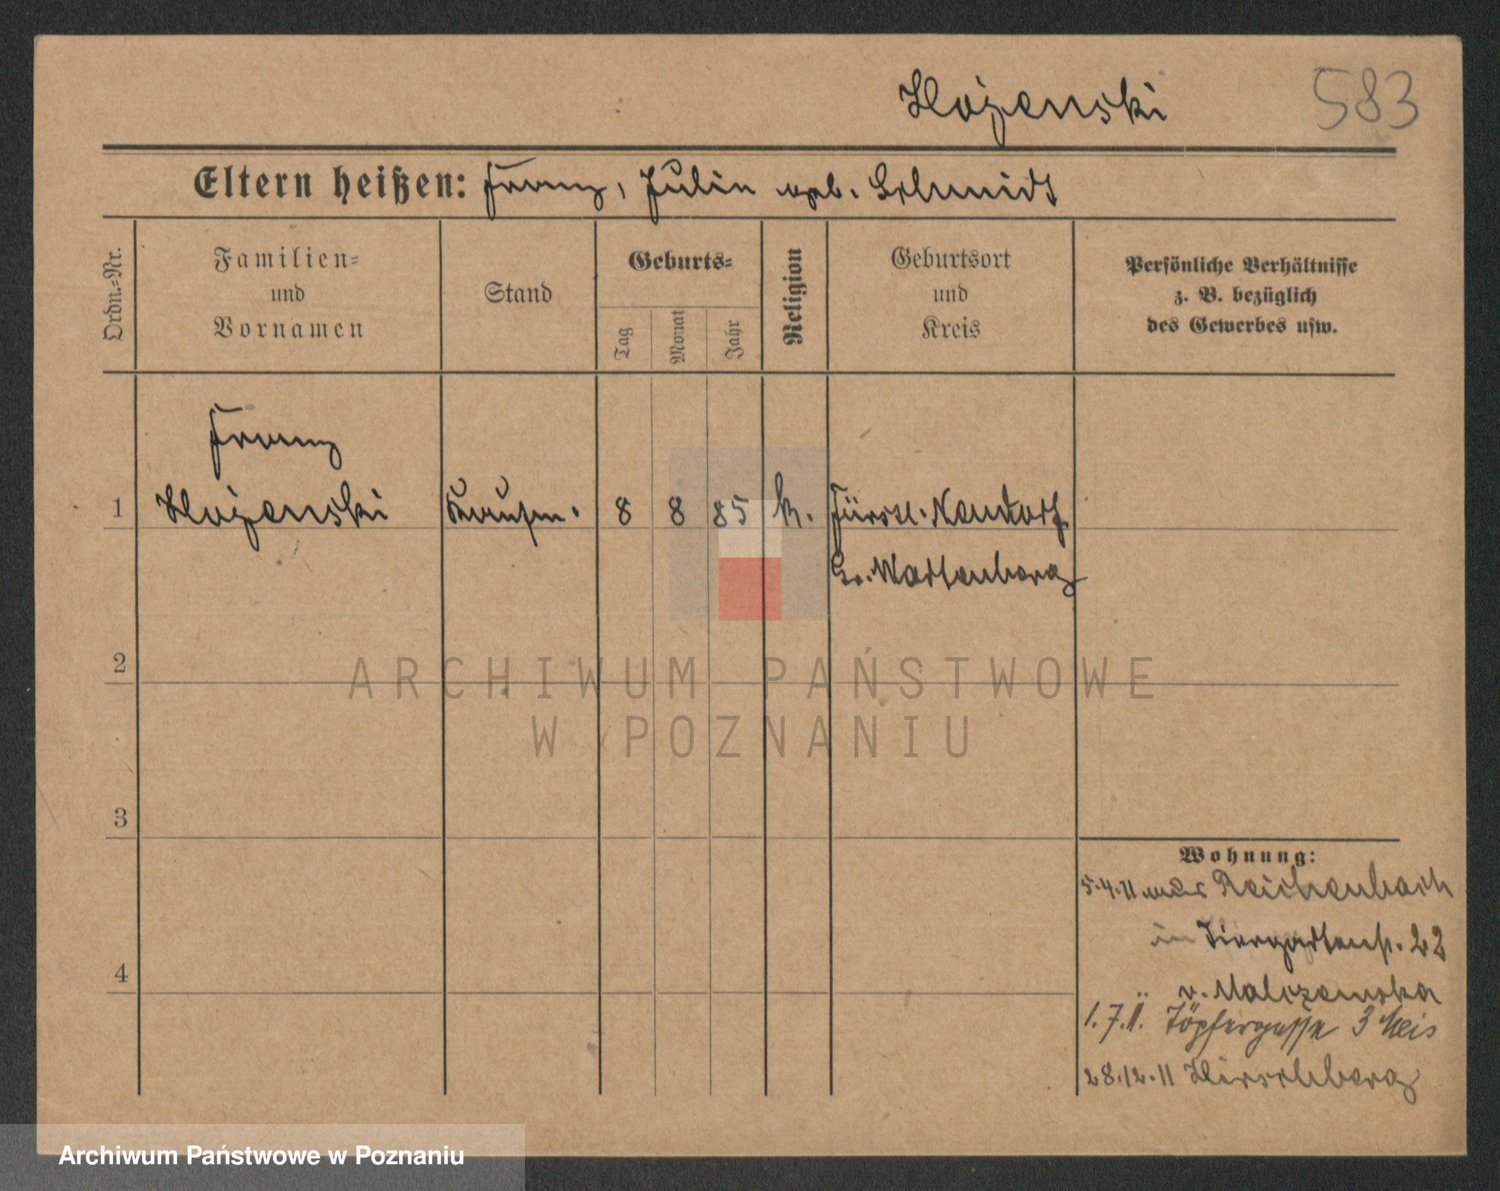 Hojenski
583
Eltern heißen: Franz, Julia geb. Schmidt
Ordn.-Nr.
Familien-
und
Vornamen
Stand
Geburts-
Tag
Monat
Jahr
Religion
Geburtsort
und
Kreis
Persönliche Verhältnisse
z. B. bezüglich
des Gewerbes usw.
Franz
1 Hojenski 8 8 85 k. Fürstl. Neudorf
Gr. Wartenberg
2
ARCHIWUM PAŃSTWOWE
W POZNANIU
3
Wohnung:
5.4.11 aus Reichenbach
in Tiergartenstr. 22
v. Malczewska
4
1.7.11. Töpfergasse 3 Weis
28.12.11 Hirschberg
Archiwum Państwowe w Poznaniu